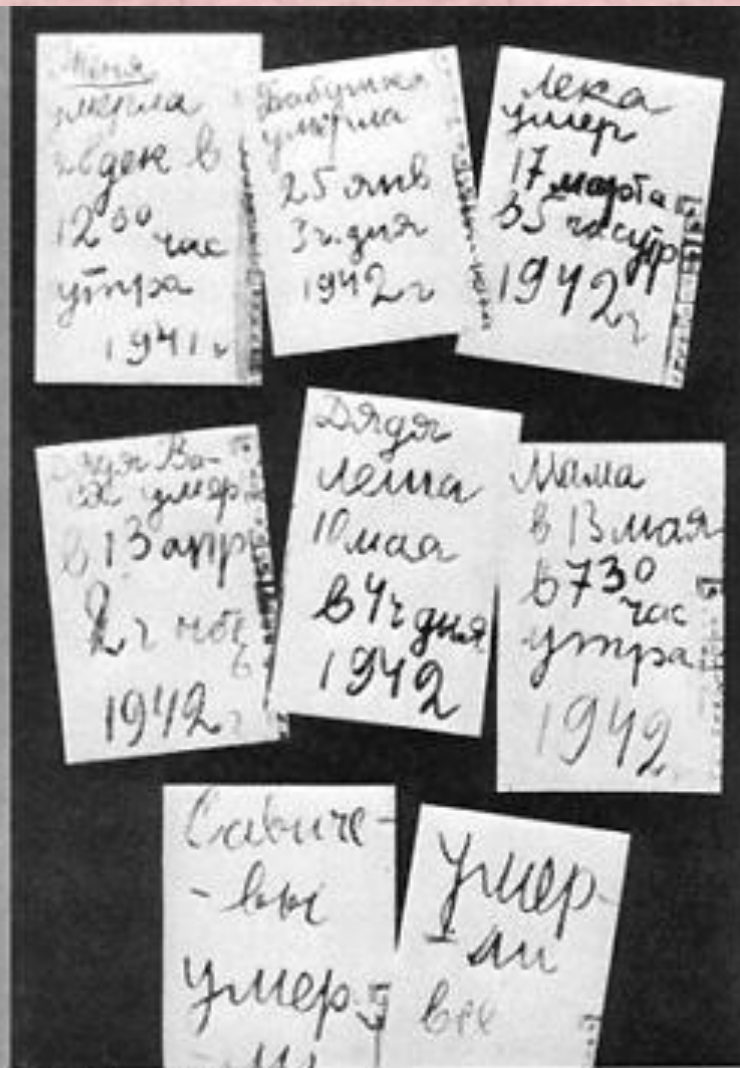 Женя
умерла
28 дек в
12 00 час
утра
1941 г
Бабушка
умерла
25 янв
3 ч. дня
1942 г
Лека
умер
17 марта
в 5 час утр
1942 г
Дядя Ва-
ся умер
в 13 апр
2 ч ночь
1942 г
Дядя
Леша
10 мая
в 4 ч дня
1942
Мама
в 13 мая
в 7 30 час
утра
1942
Савиче-
-вы
умер-
-ли
Умер-
-ли
все